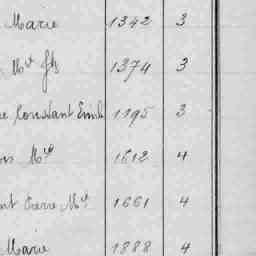 Marie 1342 3
Mt fs 1374 3
Constant Emile 1195 3
Mel 1612 4
Pierre Mel 1661 4
Marie 1888 4